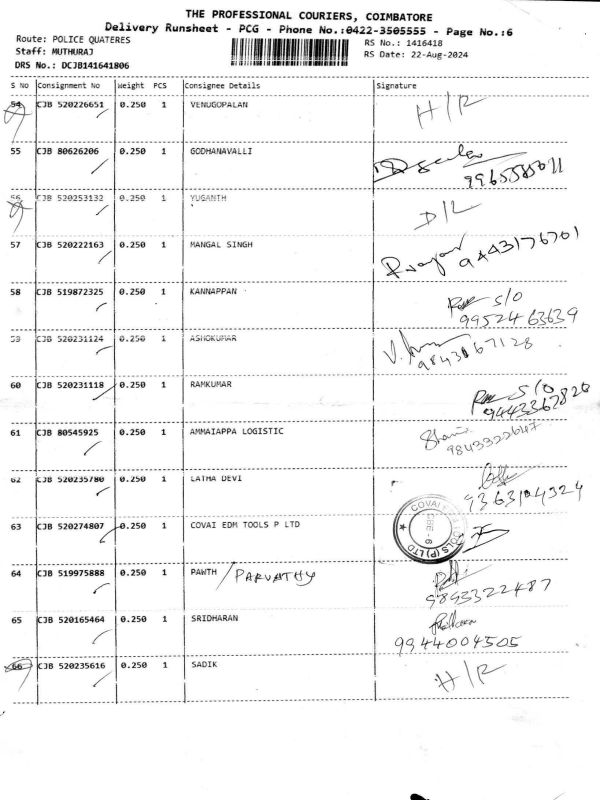 THE PROFESSIONAL COURIERS, COIMBATORE
Delivery Runsheet - PCG - Phone No.:0422-3505555 - Page No.:6
Route: POLICE QUATERES
RS No.: 1416418
Staff: MUTHURAJ
RS Date: 22-Aug-2024
DRS No.: DCJB141641806
S No Consignment No Weight PCS Consignee Details Signature
54 CJB 520226651 0.250 1 VENUGOPALAN H/R
55 CJB 80626206 0.250 1 GODHANAVALLI
56 CJB 520253132 0.250 1 YUGANTH D/L
57 CJB 520222163 0.250 1 MANGAL SINGH
9443176701
58 CJB 519872325 0.250 1 KANNAPPAN S/O
9952463639
59 CJB 520231124 0.250 1 ASHOKUMAR
9843067128
60 CJB 520231118 0.250 1 RAMKUMAR S/O
9443367826
61 CJB 80545925 0.250 1 AMMAIAPPA LOGISTIC
9843322647
62 CJB 520235780 0.250 1 LATHA DEVI
9363104324
63 CJB 520274807 0.250 1 COVAI EDM TOOLS P LTD
COVAI TOOLS (P) LTD
CBE - 6
64 CJB 519975888 0.250 1 PAWTH / PARVATHY
9893322487
65 CJB 520165464 0.250 1 SRIDHARAN
9944004505
66 CJB 520235616 0.250 1 SADIK H/R